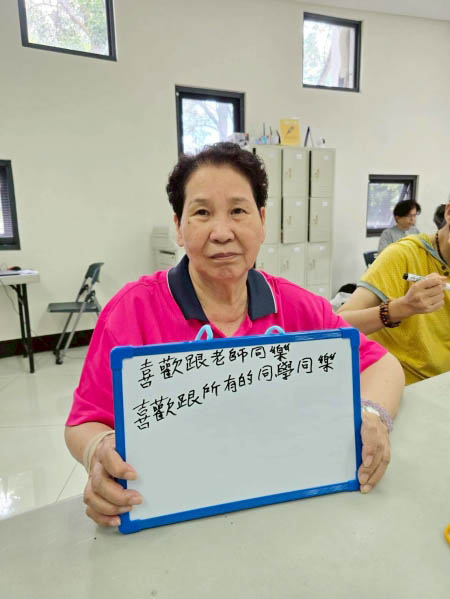 喜歡跟老師同樂
喜歡跟所有的同學同樂